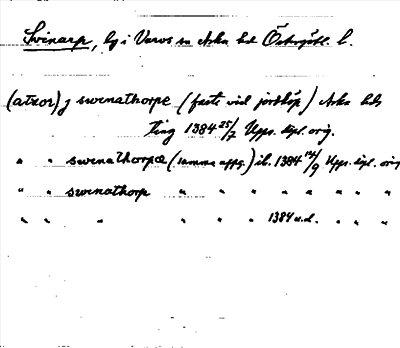 Svinarp, by i Varvs sn Aska hd Östergötl. l.
(atxor) j swenathorpe (faste vid jordköp) Aska hds
ting 1384 25/7 Upps. dipl. orig.
" " swenathorpæ (samma uppg.) ib. 1384 12/9 Upps. dipl. orig
" " swenathorp " " " " " " "
" " " " " " 1384 u.d. " " "